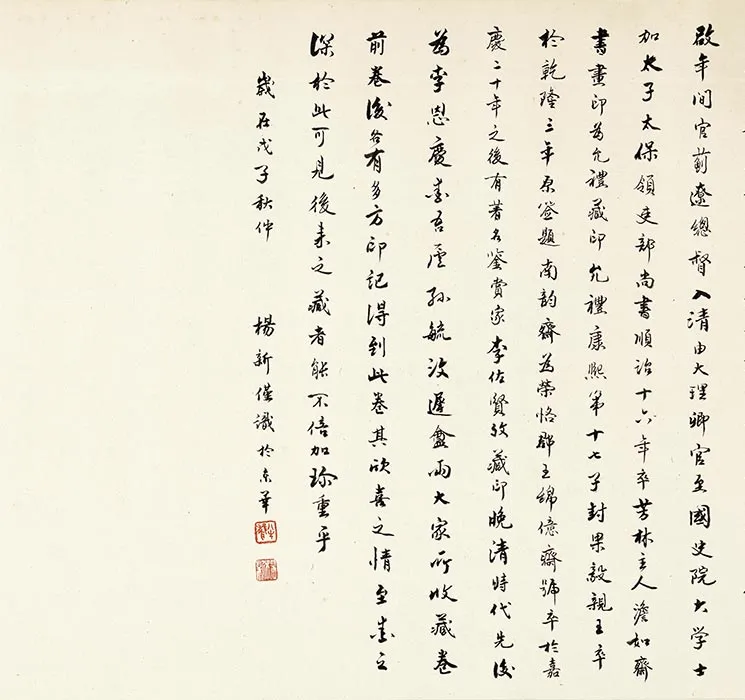 啟年间官薊遼總督入清由大理卿官至國史院大学士
加太子太保領吏部尚書順治十六年卒芳林主人澹如齋
書畫印為允禮藏印允禮康熙第十七子封果毅親王卒
於乾隆三年原签題南韵齋為榮恪郡王綿億齋號卒於嘉
慶二十年之後有著名鉴賞家李佐賢收藏印晚清時代先後
為李恩慶愛吾廬孫毓汶遲盦兩大家所收藏卷
前卷後各有多方印記得到此卷其欣喜之情至愛之
深於此可見後来之藏者能不倍加珍重乎
歲在戊子秋仲
楊新僅識於东華